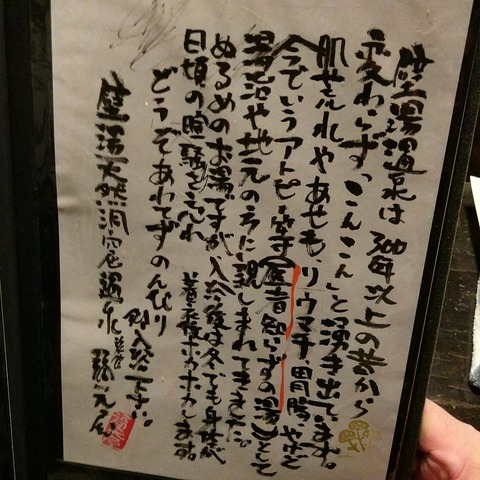 壁湯温泉は 300年以上の昔から
変わらず、「こんこん」と湧き出ています。
肌荒れやあせも、リウマチ 胃腸やまで
今でいうアトピー等
湯治や地元の方に親しまれてきました。
ぬるめのお湯ですが、入浴後は冬でも身体が
日頃の喧騒を忘れ 着衣後ポカポカします。
どうぞあわてずのんびり
御入浴下さい。
壁湯天然洞窟温泉
福元屋